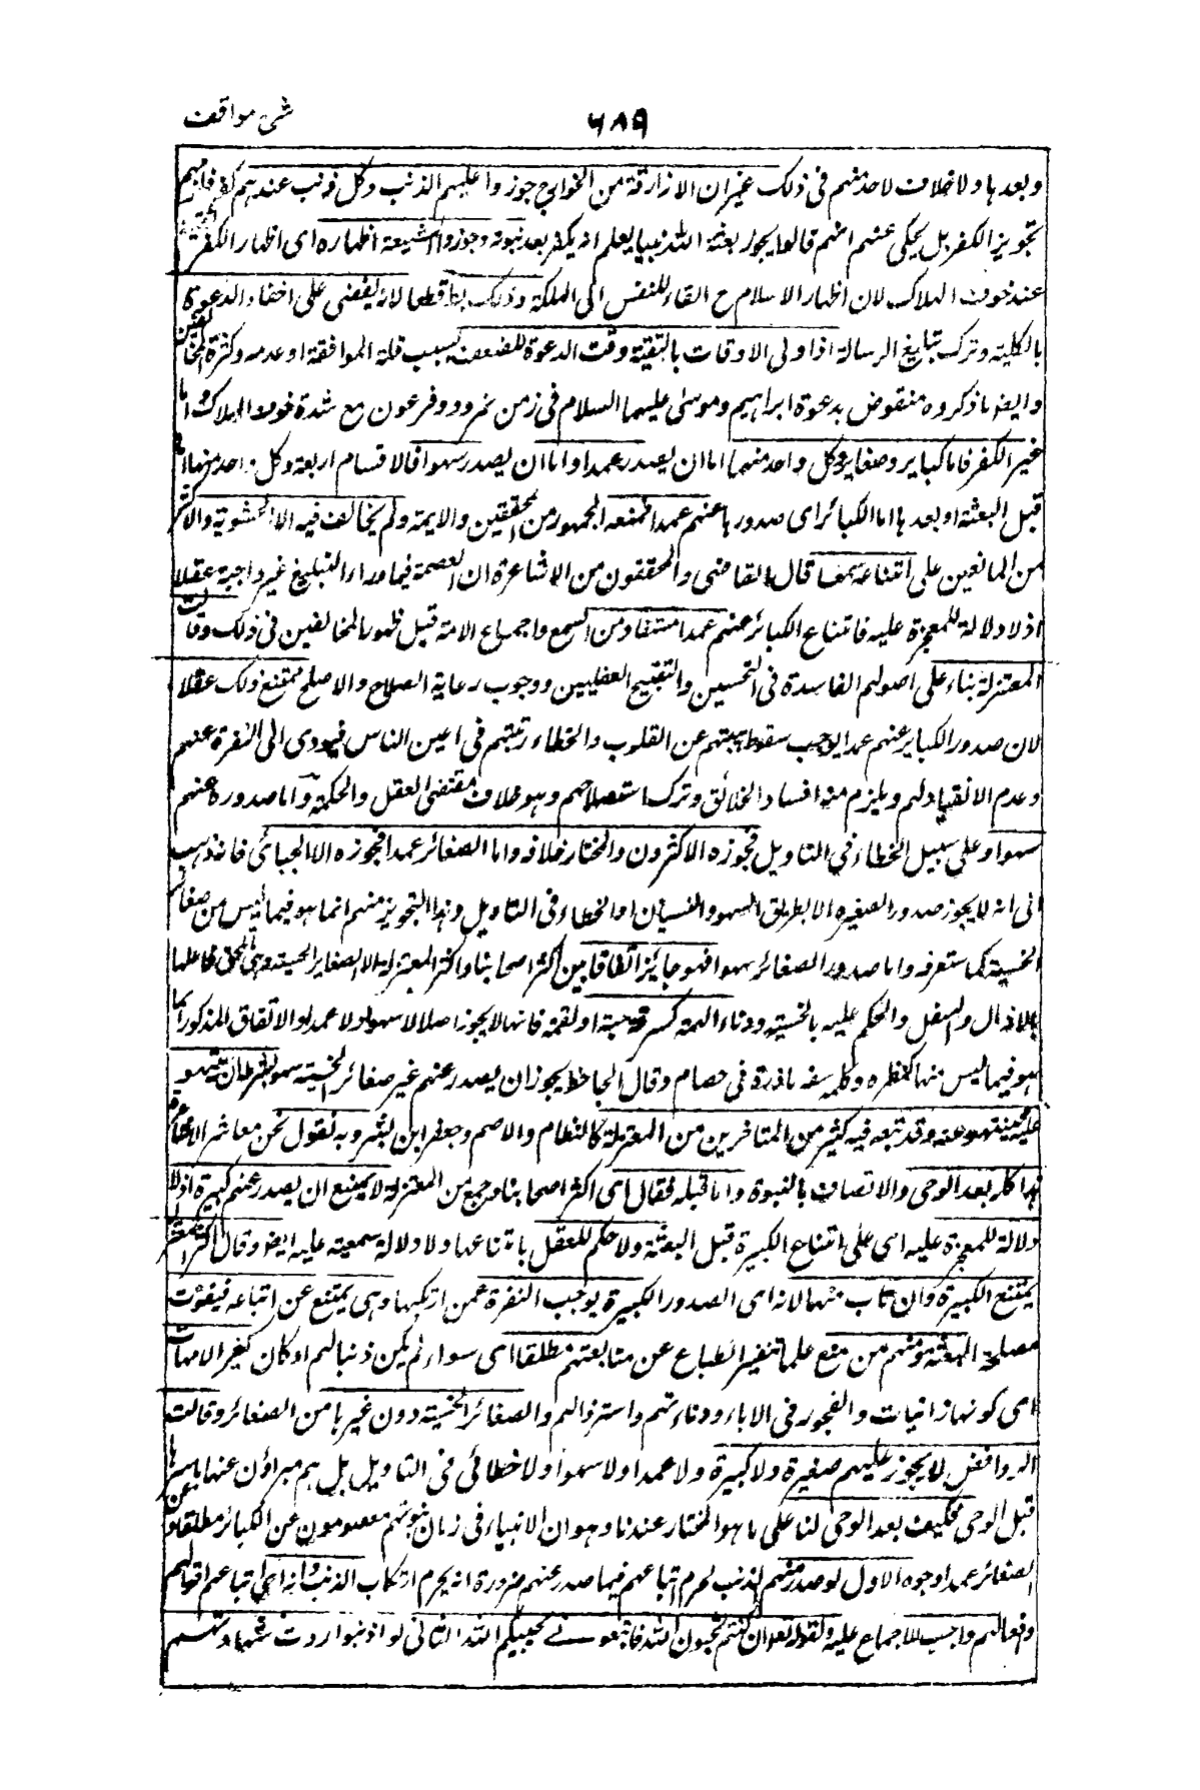 شرح مواقف
٦٨٩
وبعدها ولا خلاف لاحد منهم فى ذلك غير ان الازارقة من الخوارج جوزوا عليهم الذنب وكل ذنب عندهم كفر فلزمهم
تجويز الكفر بل يحكى عنهم انهم قالوا يجوز بعثة الله نبيا يعلم انه يكفر بعد نبوته وجوز الشيعة اظهاره اى اظهار الكفر تقية
عند خوف الهلاك لان اظهار الاسلام ح القاء للنفس الى الهلكة وذلك بط قطعا لانه يفضى على اخفاء الدعوة
بالكلية وترك تبليغ الرسالة اذ اولى الاوقات بالتقية وقت الدعوة للضعف بسبب قلة الموافقة او عدمه وكثرة المخالفين
وايضا ما ذكروه منقوض بدعوة ابراهيم وموسى عليهما السلام فى زمن نمرود وفرعون مع شدة خوف الهلاك واما
غير الكفر فاما كباير وصغاير وكل واحد منهما اما ان يصدر عمدا واما ان يصدر سهوا فالاقسام اربعة وكل واحد منها اما
قبل البعثة او بعدها اما الكبائر اى صدورها عنهم عمدا فمنعه الجمهور من المحققين والايمة ولم يخالف فيه الا الحشوية والاكثر
من المانعين على امتناعه سمعا قال القاضى والمحققون من الاشاعرة ان العصمة فيما وراء التبليغ غير واجبة عقلا
اذ لا دلالة للمعجزة عليه فامتناع الكبائر عنهم عمدا مستفاد من السمع واجماع الامة قبل ظهور المخالفين فى ذلك وقالت
المعتزلة بناء على اصولهم الفاسدة فى التحسين والتقبيح العقليين ووجوب رعاية الصلاح والاصلح يمتنع ذلك عقلا
لان صدور الكباير عنهم عمدا يوجب سقوط هيبتهم عن القلوب وانحطاء رتبتهم فى اعين الناس فيودى الى النفرة عنهم
وعدم الانقياد لهم ويلزم منه افساد الخلائق وترك استصلاحهم وهو خلاف مقتضى العقل والحكمة واما صدوره عنهم
سهوا وعلى سبيل الخطاء فى التاويل فجوزه الاكثرون والمختار خلافه واما الصغائر عمدا فجوزه الا الجبائى فانه ذهب
الى انه لا يجوز صدور الصغيره الا بطريق السهو والنسيان او الخطاء فى التاويل وهذا التجويز منهم انما هو فيما ليس من صغائر
الخسية كما ستعرفه واما صدور الصغائر سهوا فهو جايز اتفاقا بين اكثر اصحابنا واكثر المعتزلة الا الصغاير الخسية وهى ما يلحق فاعلها
بالارذال والسفل والحكم عليه بالخسية ودناءة الهمة كسرقة حبة او لقمة فانها لا يجوز اصلا لا سهوا ولا عمدا والاتفاق المذكور انما
هو فيما ليس منها كنظره وكلمة سفه نادرة فى خصام وقال الجاحظ يجوز ان يصدر عنهم غير صغائر الخسية سهوا بشرط ان ينبهوا
عليه فينتهوا عنه وقد تبعه فيه كثير من المتاخرين من المعتزلة كالنظام والاصم وجعفر ابن بشر وبه نقول نحن معاشر الاشاعرة
هذا كله بعد الوحى والاتصاف بالنبوة واما قبله فقال اى اكثر اصحابنا وجمع من المعتزلة لا يمتنع ان يصدر عنهم كبيرة اذ لا
دلالة للمعجزة عليه اى على امتناع الكبيرة قبل البعثة ولا حكم للعقل بامتناعها ولا دلالة سمعية عليه ايضا وقال اكثر المعتزلة
يمتنع الكبيرة وان تاب منها لانه اى الصدور الكبيرة يوجب النفرة عمن ارتكبها وهى يمتنع عن اتباعه فيفوت
مصلحة البعثة ومنهم من منع عما تنفير الطباع عن متابعتهم مطلقا اى سواء لم يكن ذنبا لهم او كان كعهر الامهات
اى كونها زانيات والفجور فى الاباء ودناءتهم واسترذالهم والصغائر الخسية دون غيرها من الصغائر وقالت
الروافض لا يجوز عليهم صغيرة ولا كبيرة ولا عمدا ولا سهوا ولا خطائى فى التاويل بل هم مبراؤن عنها باسرها
قبل الوحى فكيف بعد الوحى لنا على ما هو المختار عندنا وهو ان الانبياء فى زمان نبوتهم معصومون عن الكبائر مطلقا وعن
الصغائر عمدا وجوه الاول لو صدر منهم الذنب لحرم اتباعهم فيما صدر عنهم ضرورة انه يحرم ارتكاب الذنب وانه اى اتباعهم فى اقوالهم
وفعالهم واجب للاجماع عليه ولقوله تع ان كنتم تحبون الله فاتبعونى يحببكم الله الثانى لو اذنبوا ردت شهادتهم